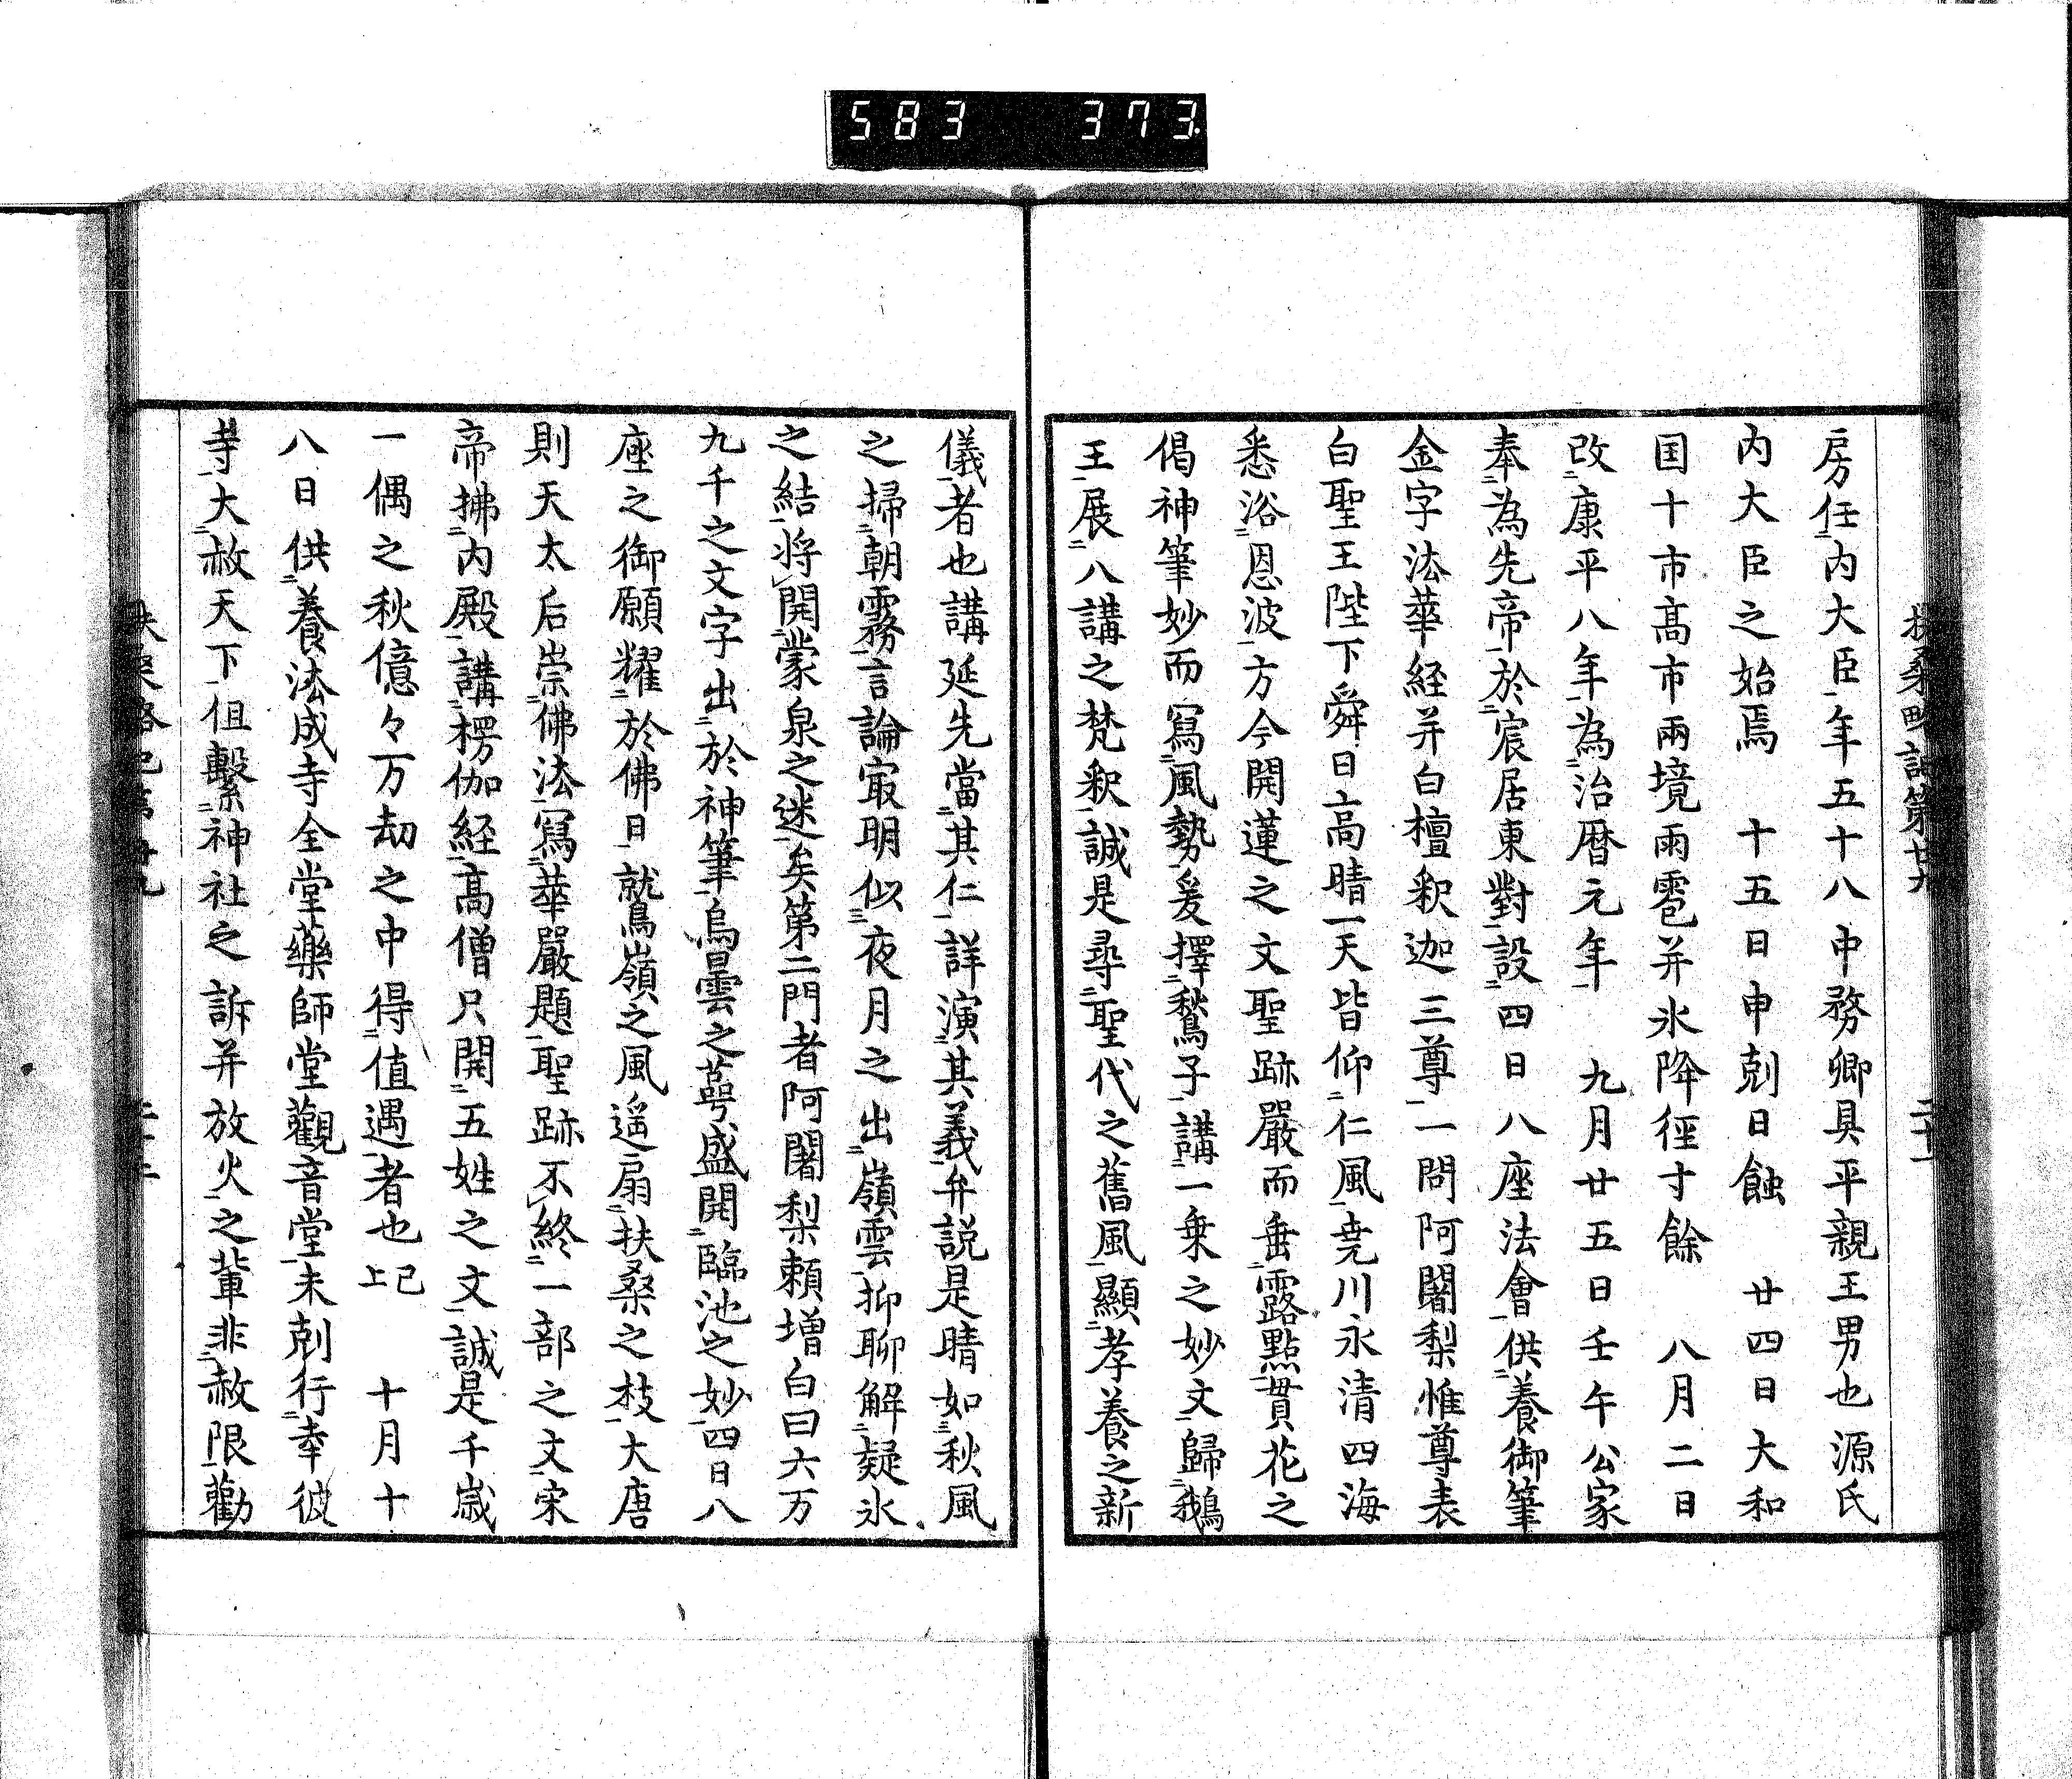 583 373
扶桑略記第廿九 二十一
房任内大臣年五十八中務卿具平親王男也源氏
内大臣之始焉 十五日申剋日蝕 廿四日大和
国十市高市兩境雨雹并氷降徑寸餘 八月二日
改康平八年為治暦元年 九月廿五日壬午公家
奉為先帝於宸居東對設四日八座法會供養御筆
金字法華経并白檀釈迦三尊一問阿闍梨惟尊表
白聖王陛下舜日高晴一天皆仰仁風尭川永清四海
悉浴恩波方今開蓮之文聖跡嚴而垂露點貫花之
偈神筆妙而寫風勢爰擇鶖子講一乗之妙文歸鵝
王展八講之梵釈誠是尋聖代之舊風顯孝養之新
儀者也講延先當其仁詳演其義弁説是晴如秋風
之掃朝霧言論冣明似夜月之出嶺雲抑聊解疑氷
之結将開蒙泉之迷矣第二門者阿闍梨頼増白曰六万
九千之文字出於神筆烏曇之萼盛開臨池之妙四日八
座之御願耀於佛日就鳥嶺之風遥扇扶桑之枝大唐
則天太后崇佛法寫華嚴題聖跡不終一部之文宋
帝拂内殿講楞伽経高僧只開五姓之文誠是千歳
一偶之秋億々万劫之中得値遇者也已上 十月十
八日供養法成寺全堂藥師堂觀音堂未剋行幸彼
寺大赦天下但繫神社之訴并放火之輩非赦限勸
扶桑略記第廿九 二十一